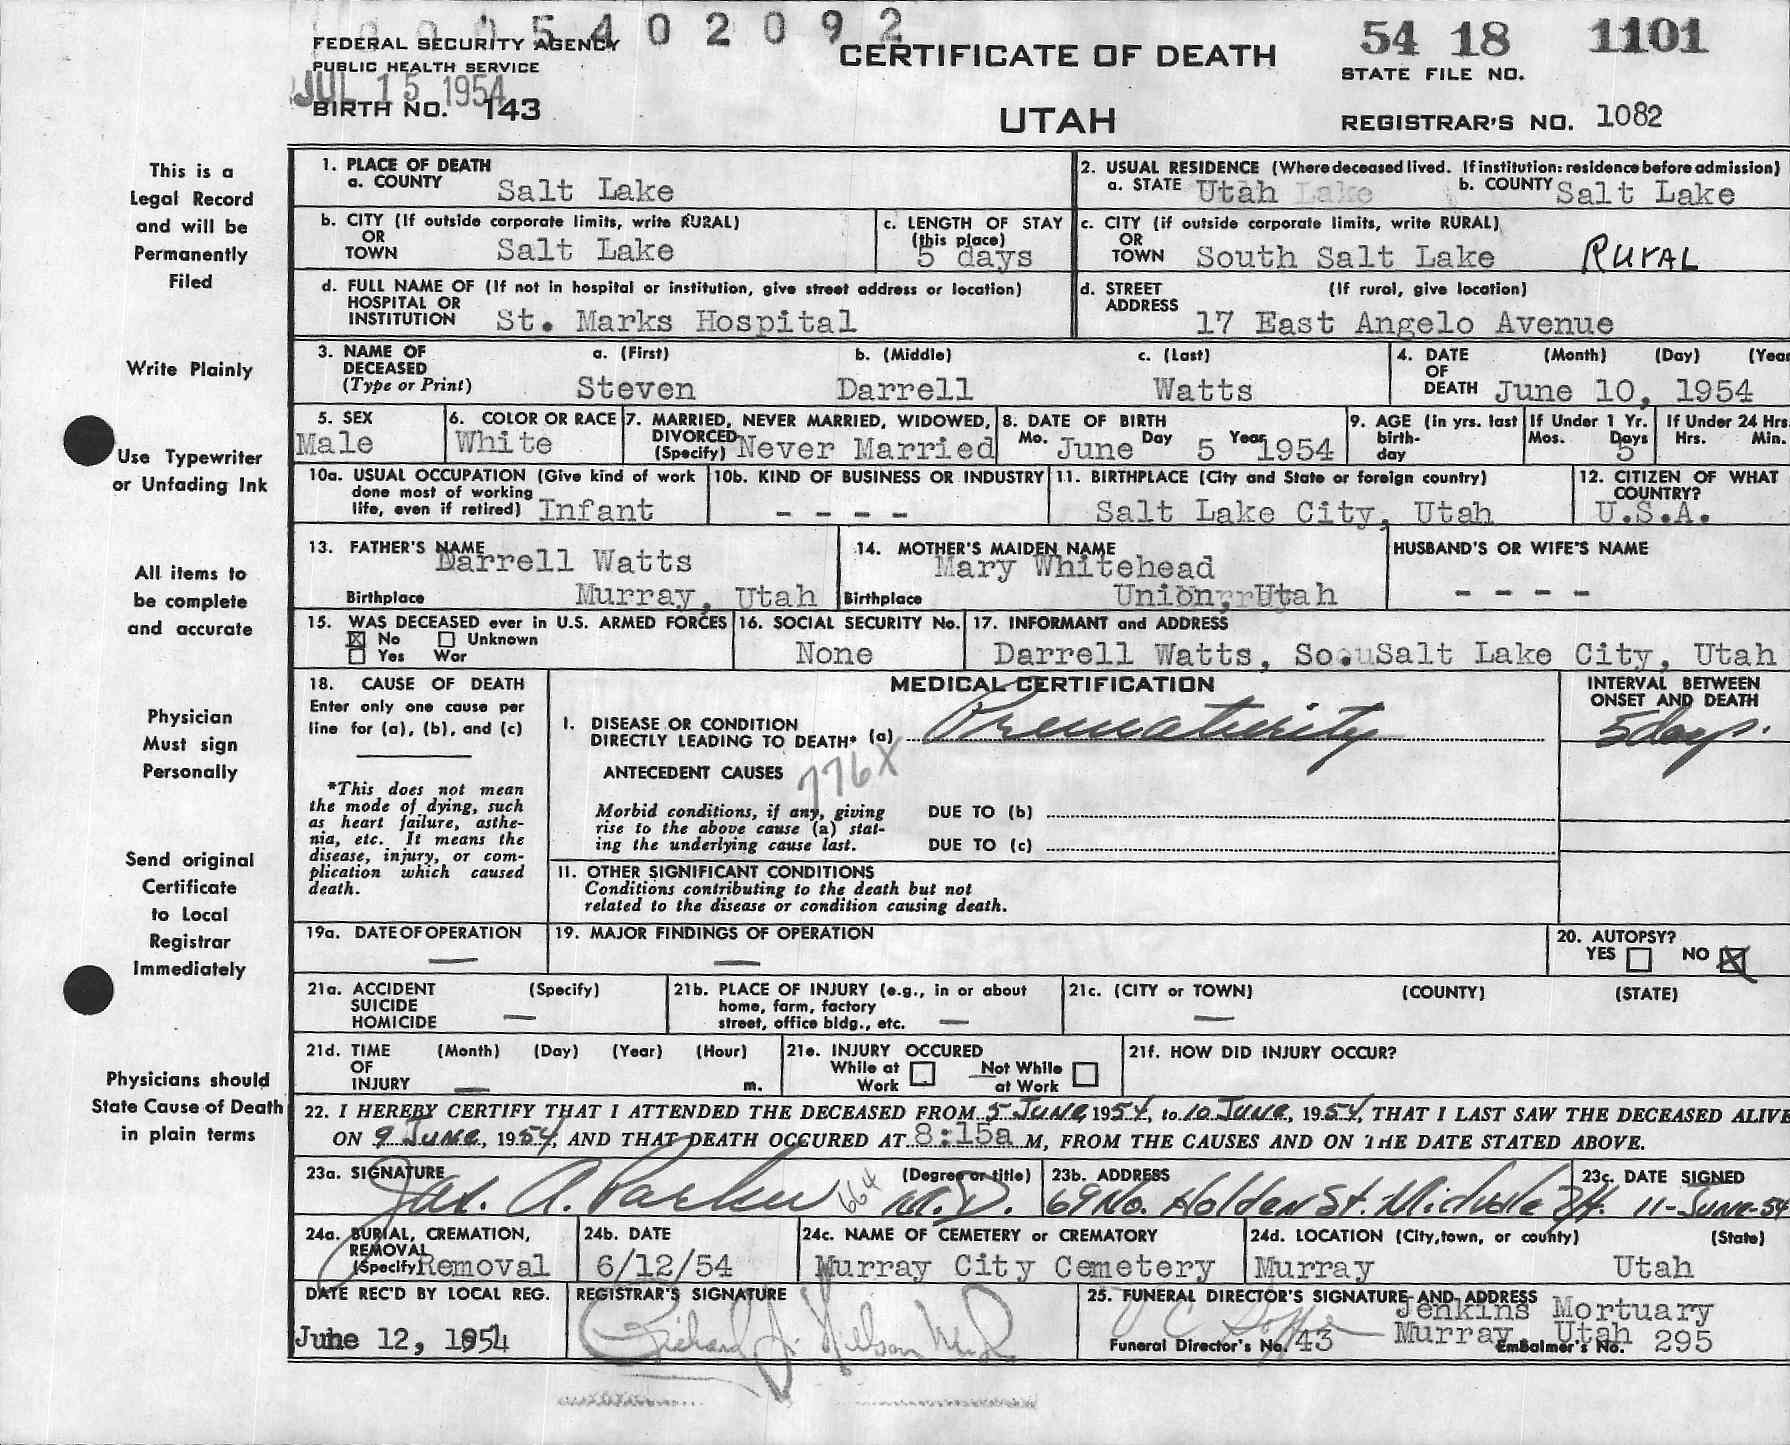 0 0 0 5 4 0 2 0 9 2
FEDERAL SECURITY AGENCY
PUBLIC HEALTH SERVICE
JUL 15 1954
BIRTH NO. 143
CERTIFICATE OF DEATH
UTAH
54 18 1101
STATE FILE NO.
REGISTRAR'S NO. 1082
This is a
Legal Record
and will be
Permanently
Filed
Write Plainly
Use Typewriter
or Unfading Ink
All items to
be complete
and accurate
Physician
Must sign
Personally
Send original
Certificate
to Local
Registrar
Immediately
Physicians should
State Cause of Death
in plain terms
1. PLACE OF DEATH
a. COUNTY Salt Lake
2. USUAL RESIDENCE (Where deceased lived. If institution: residence before admission)
a. STATE Utah b. COUNTY Salt Lake
b. CITY (If outside corporate limits, write RURAL)
OR
TOWN Salt Lake
c. LENGTH OF STAY
(this place)
5 days
c. CITY (if outside corporate limits, write RURAL)
OR
TOWN South Salt Lake RURAL
d. FULL NAME OF (If not in hospital or institution, give street address or location)
HOSPITAL OR
INSTITUTION St. Marks Hospital
d. STREET (If rural, give location)
ADDRESS
17 East Angelo Avenue
3. NAME OF a. (First) b. (Middle) c. (Last)
DECEASED
(Type or Print) Steven Darrell Watts
4. DATE (Month) (Day) (Year
OF
DEATH June 10, 1954
5. SEX
Male
6. COLOR OR RACE
White
7. MARRIED, NEVER MARRIED, WIDOWED,
DIVORCED
(Specify) Never Married
8. DATE OF BIRTH
Mo. June Day 5 Year 1954
9. AGE (in yrs. last
birth-
day
If Under 1 Yr.
Mos. Days
5
If Under 24 Hrs.
Hrs. Min.
10a. USUAL OCCUPATION (Give kind of work
done most of working
life, even if retired) Infant
10b. KIND OF BUSINESS OR INDUSTRY
- - - -
11. BIRTHPLACE (City and State or foreign country)
Salt Lake City, Utah
12. CITIZEN OF WHAT
COUNTRY?
U.S.A.
13. FATHER'S NAME
Darrell Watts
Birthplace Murray, Utah
14. MOTHER'S MAIDEN NAME
Mary Whitehead
Birthplace Union, Utah
HUSBAND'S OR WIFE'S NAME
- - - -
15. WAS DECEASED ever in U.S. ARMED FORCES
☒ No ☐ Unknown
☐ Yes War
16. SOCIAL SECURITY No.
None
17. INFORMANT and ADDRESS
Darrell Watts, So. Salt Lake City, Utah
18. CAUSE OF DEATH
Enter only one cause per
line for (a), (b), and (c)
*This does not mean
the mode of dying, such
as heart failure, asthe-
nia, etc. It means the
disease, injury, or com-
plication which caused
death.
MEDICAL CERTIFICATION
I. DISEASE OR CONDITION
DIRECTLY LEADING TO DEATH* (a) Prematurity
INTERVAL BETWEEN
ONSET AND DEATH
5 days.
ANTECEDENT CAUSES 776X
Morbid conditions, if any, giving
rise to the above cause (a) stat-
ing the underlying cause last.
DUE TO (b)
DUE TO (c)
11. OTHER SIGNIFICANT CONDITIONS
Conditions contributing to the death but not
related to the disease or condition causing death.
19a. DATE OF OPERATION
—
19. MAJOR FINDINGS OF OPERATION
—
20. AUTOPSY?
YES ☐ NO ☒
21a. ACCIDENT (Specify)
SUICIDE
HOMICIDE —
21b. PLACE OF INJURY (e.g., in or about
home, farm, factory
street, office bldg., etc. —
21c. (CITY or TOWN) (COUNTY) (STATE)
—
21d. TIME (Month) (Day) (Year) (Hour)
OF
INJURY — m.
21e. INJURY OCCURED
While at Work ☐ Not While at Work ☐
21f. HOW DID INJURY OCCUR?
22. I HEREBY CERTIFY THAT I ATTENDED THE DECEASED FROM 5 June, 1954, to 10 June, 1954, THAT I LAST SAW THE DECEASED ALIVE
ON 9 June, 1954, AND THAT DEATH OCCURED AT 8:15a M, FROM THE CAUSES AND ON THE DATE STATED ABOVE.
23a. SIGNATURE (Degree or title)
Jas. A. Parker 664 M.D.
23b. ADDRESS
69 No. Holden St. Midvale Ut.
23c. DATE SIGNED
11-June-54
24a. BURIAL, CREMATION,
REMOVAL
(Specify) Removal
24b. DATE
6/12/54
24c. NAME OF CEMETERY OR CREMATORY
Murray City Cemetery
24d. LOCATION (City, town, or county) (State)
Murray Utah
DATE REC'D BY LOCAL REG.
June 12, 1954
REGISTRAR'S SIGNATURE
Richard J. Nelson M.D.
25. FUNERAL DIRECTOR'S SIGNATURE AND ADDRESS
Jenkins Mortuary
Murray, Utah
Funeral Director's No. 43 Embalmer's No. 295